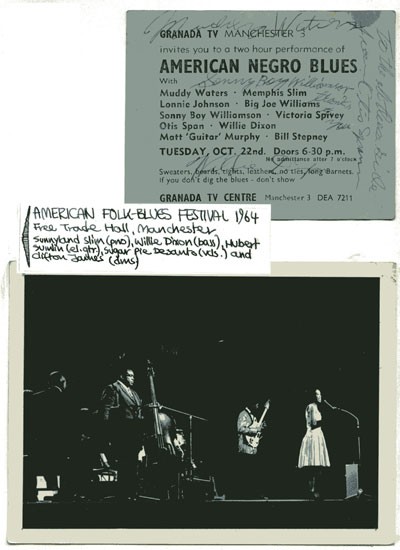 Muddy Waters
GRANADA TV MANCHESTER 3
invites you to a two hour performance of
AMERICAN NEGRO BLUES
With Sonny Boy Williamson
Muddy Waters · Memphis Slim
Lonnie Johnson · Big Joe Williams
Sonny Boy Williamson · Victoria Spivey
Otis Span · Willie Dixon
Matt 'Guitar' Murphy · Bill Stepney
TUESDAY, OCT. 22nd. Doors 6-30 p.m.
No admittance after 7 o'clock
Sweaters, beards, tights, leathers, no ties, long barnets,
if you don't dig the blues - don't show
GRANADA TV CENTRE Manchester 3 DEA 7211
AMERICAN FOLK-BLUES FESTIVAL 1964
Free Trade Hall, Manchester
Sunnyland Slim (pno), Willie Dixon (bass), Hubert
Sumlin (el.gtr), Sugar Pie Desanto (vcls.) and
Clifton James (dms)